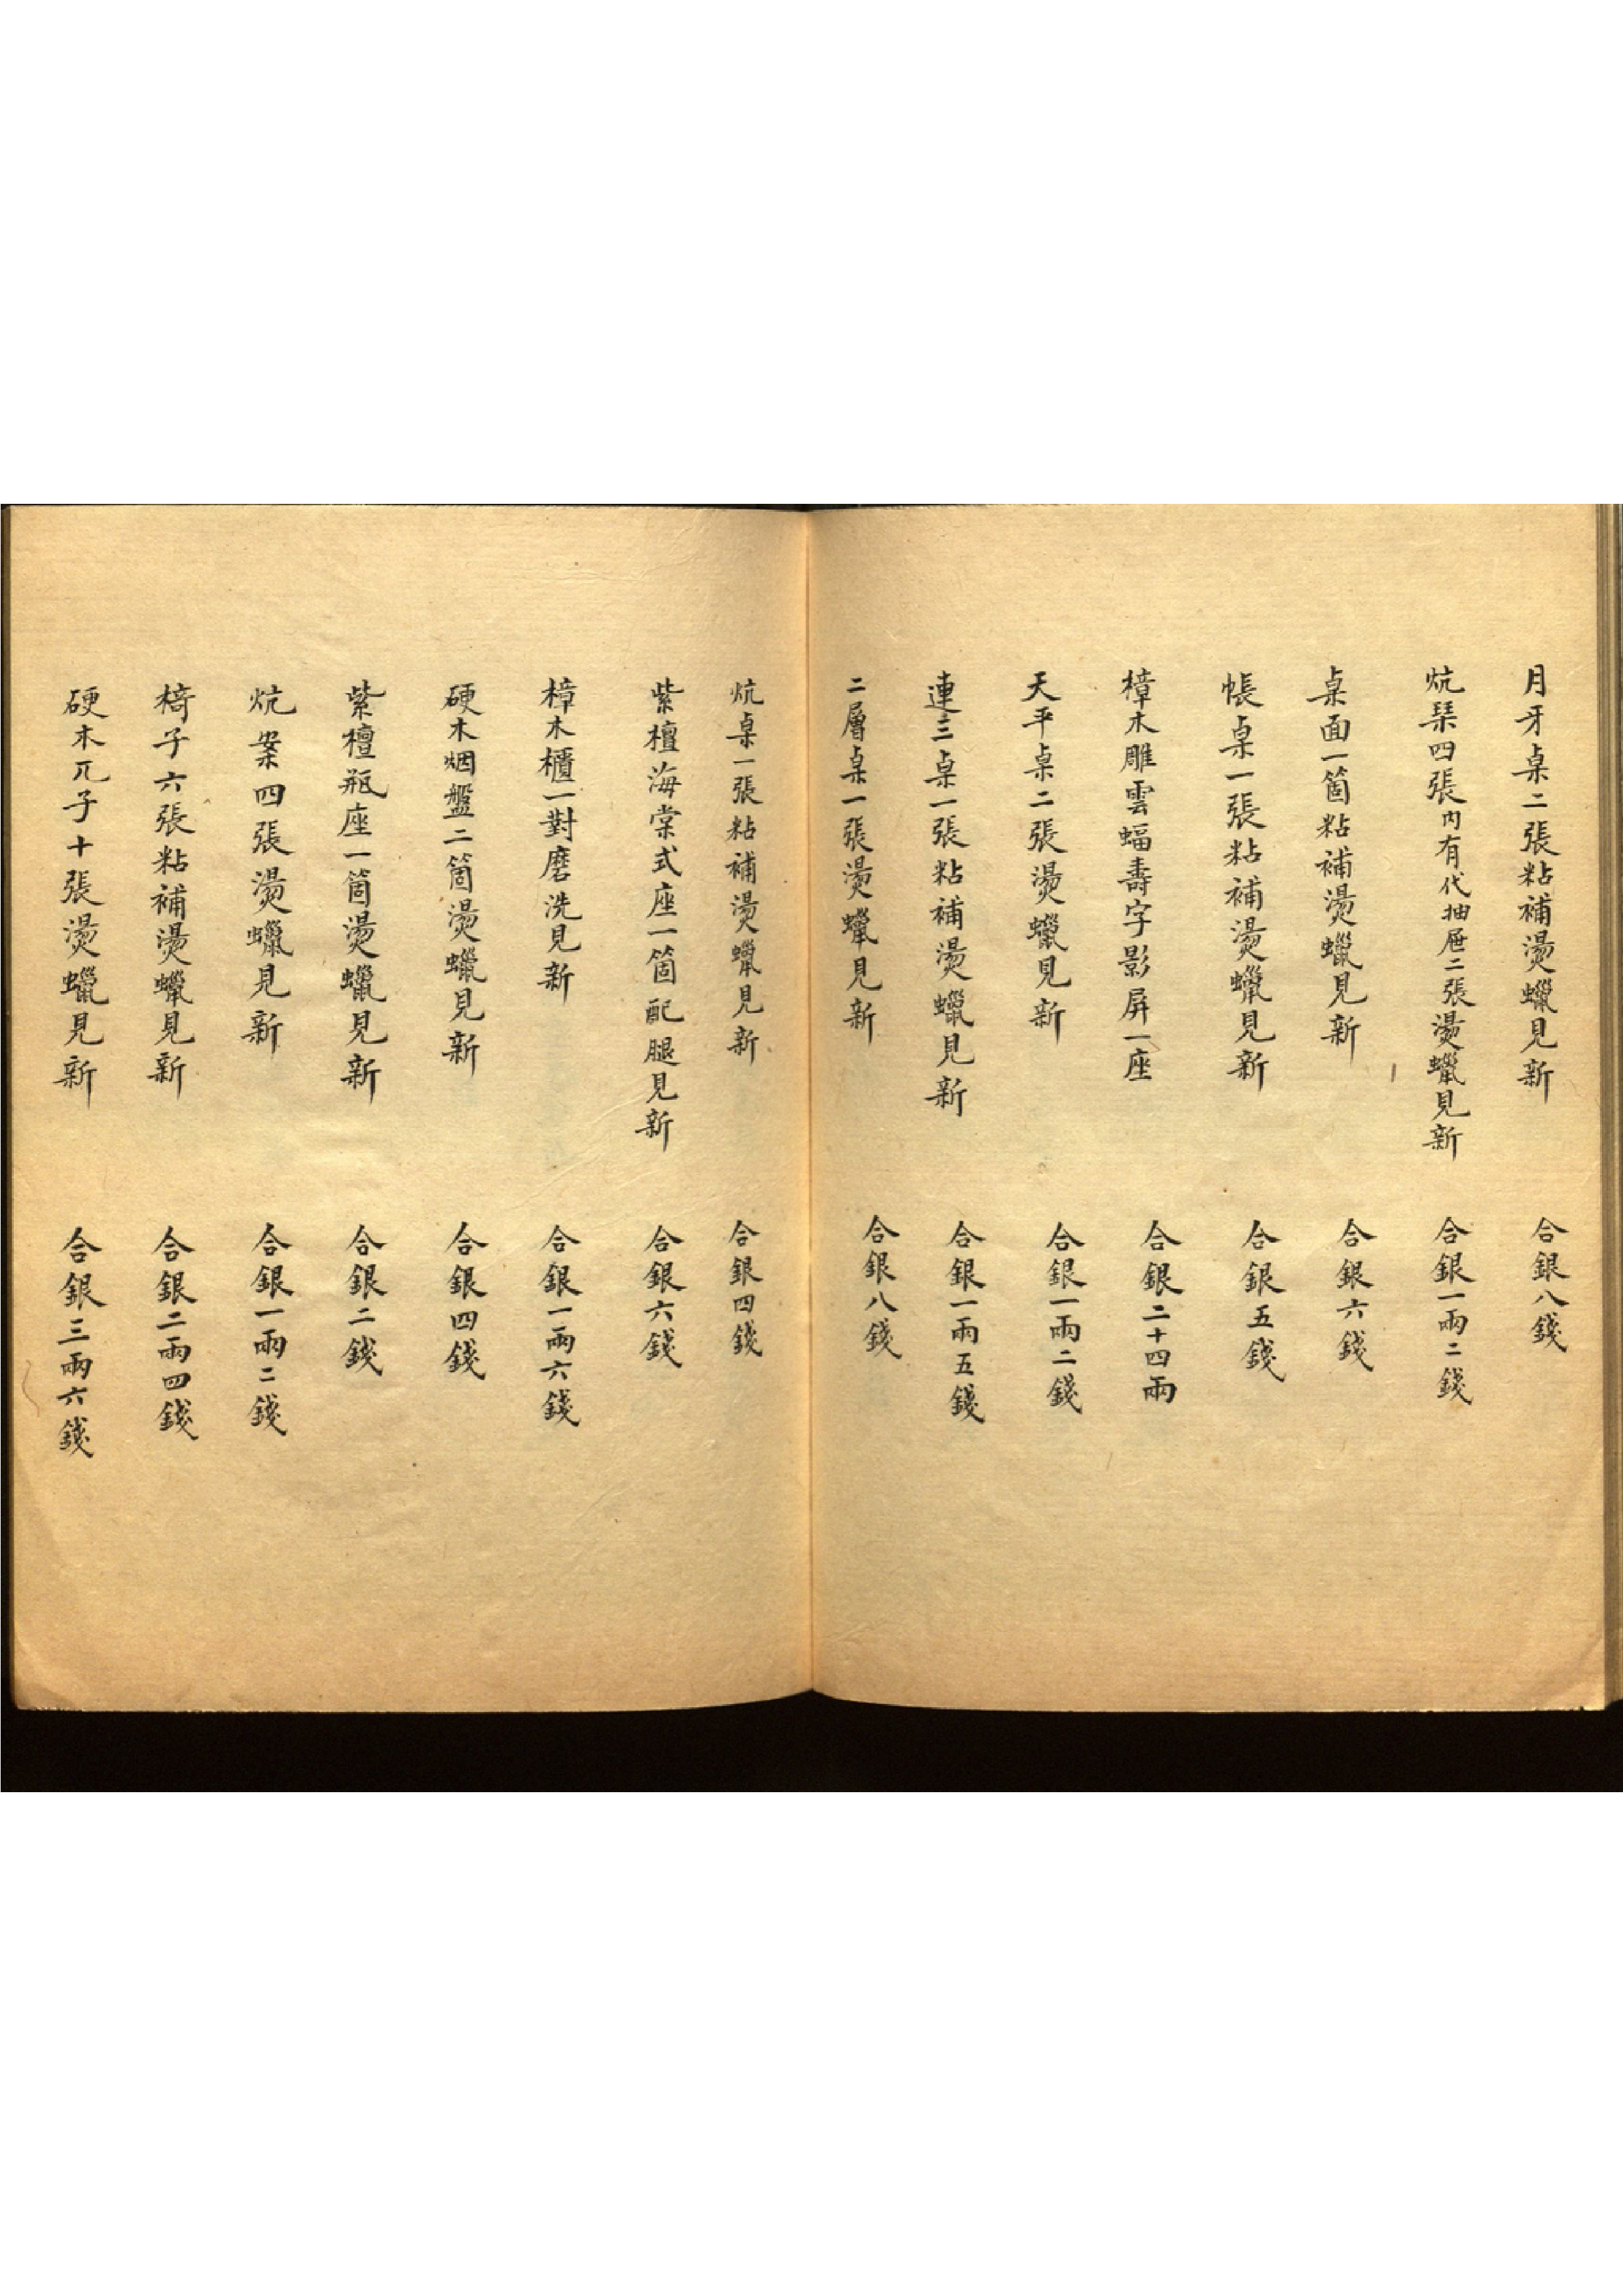 月牙桌二張粘補燙蠟見新 合銀八錢
炕琹四張內有代抽屜二張燙蠟見新 合銀一兩二錢
桌面一箇粘補燙蠟見新 合銀六錢
帳桌一張粘補燙蠟見新 合銀五錢
樟木雕雲蝠壽字影屏一座 合銀二十四兩
天平桌二張燙蠟見新 合銀一兩二錢
連三桌一張粘補燙蠟見新 合銀一兩五錢
二層桌一張燙蠟見新 合銀八錢
炕桌一張粘補燙蠟見新 合銀四錢
紫檀海棠式座一箇配腿見新 合銀六錢
樟木櫃一對磨洗見新 合銀一兩六錢
硬木烟盤二箇燙蠟見新 合銀四錢
紫檀瓶座一箇燙蠟見新 合銀二錢
炕案四張燙蠟見新 合銀一兩二錢
椅子六張粘補燙蠟見新 合銀二兩四錢
硬木兀子十張燙蠟見新 合銀三兩六錢